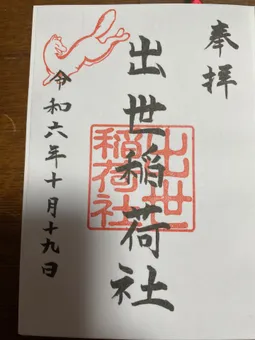 奉拝
出世稲荷社
出世
稲荷社
令和六年十月十九日